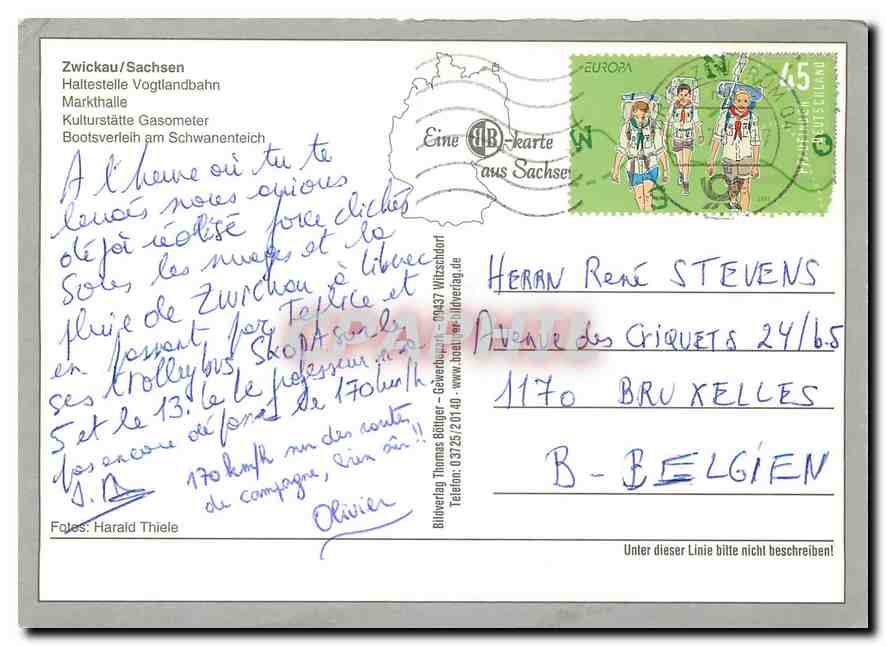 Zwickau/Sachsen
Haltestelle Vogtlandbahn
Markthalle
Kulturstätte Gasometer
Bootsverleih am Schwanenteich
A l'heure où tu te
levais nous avions
déjà réalisé force clichés
Sous les nuages et la
pluie de Zwickau à Liberec
en passant par Teplice et
ses trolleybus SKODA sur le
5 et le 13. Le professeur n'a
pas encore dépassé le 170 km/h.
170 km/h sur des routes
de campagne, bien sûr!!
Olivier
Fotos: Harald Thiele
Eine BB-karte
aus Sachsen
Bildverlag Thomas Böttger – Gewerbepark – 09437 Witzschdorf
Telefon: 03725/20140 · www.boettger-bildverlag.de
EUROPA
45
DEUTSCHLAND
PFADFINDER
HERRN René STEVENS
Avenue des CRIQUETS 24/b.5
1170 BRUXELLES
B - BELGIEN
Unter dieser Linie bitte nicht beschreiben!